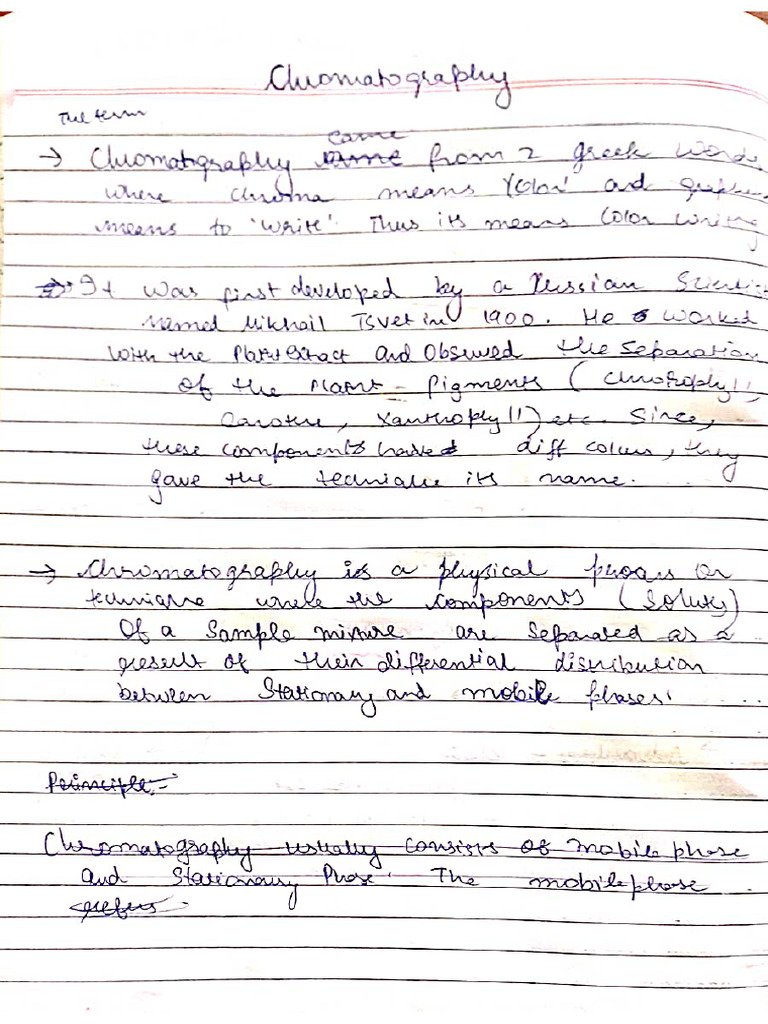 Chromatography
The term
came
→ Chromatography came from 2 greek words
where chroma means 'Color' and
means to 'write'. Thus its means Color writing
→ It was first developed by a Russian Scientist
named Mikhail Tsvet in 1900. He worked
with the Plant extract and Observed the separation
of the Plant - Pigments (Chlorophyll,
Carotene, Xanthophyll) etc. Since,
these components have diff colors, they
gave the technique its name.
→ Chromatography is a physical process or
technique where the components (Solutes)
Of a Sample mixture are Separated as a
result of their differential distribution
between Stationary and mobile phases.
Principle -
Chromatography usually consists of mobile phase
and Stationary Phase. The mobile phase
refers